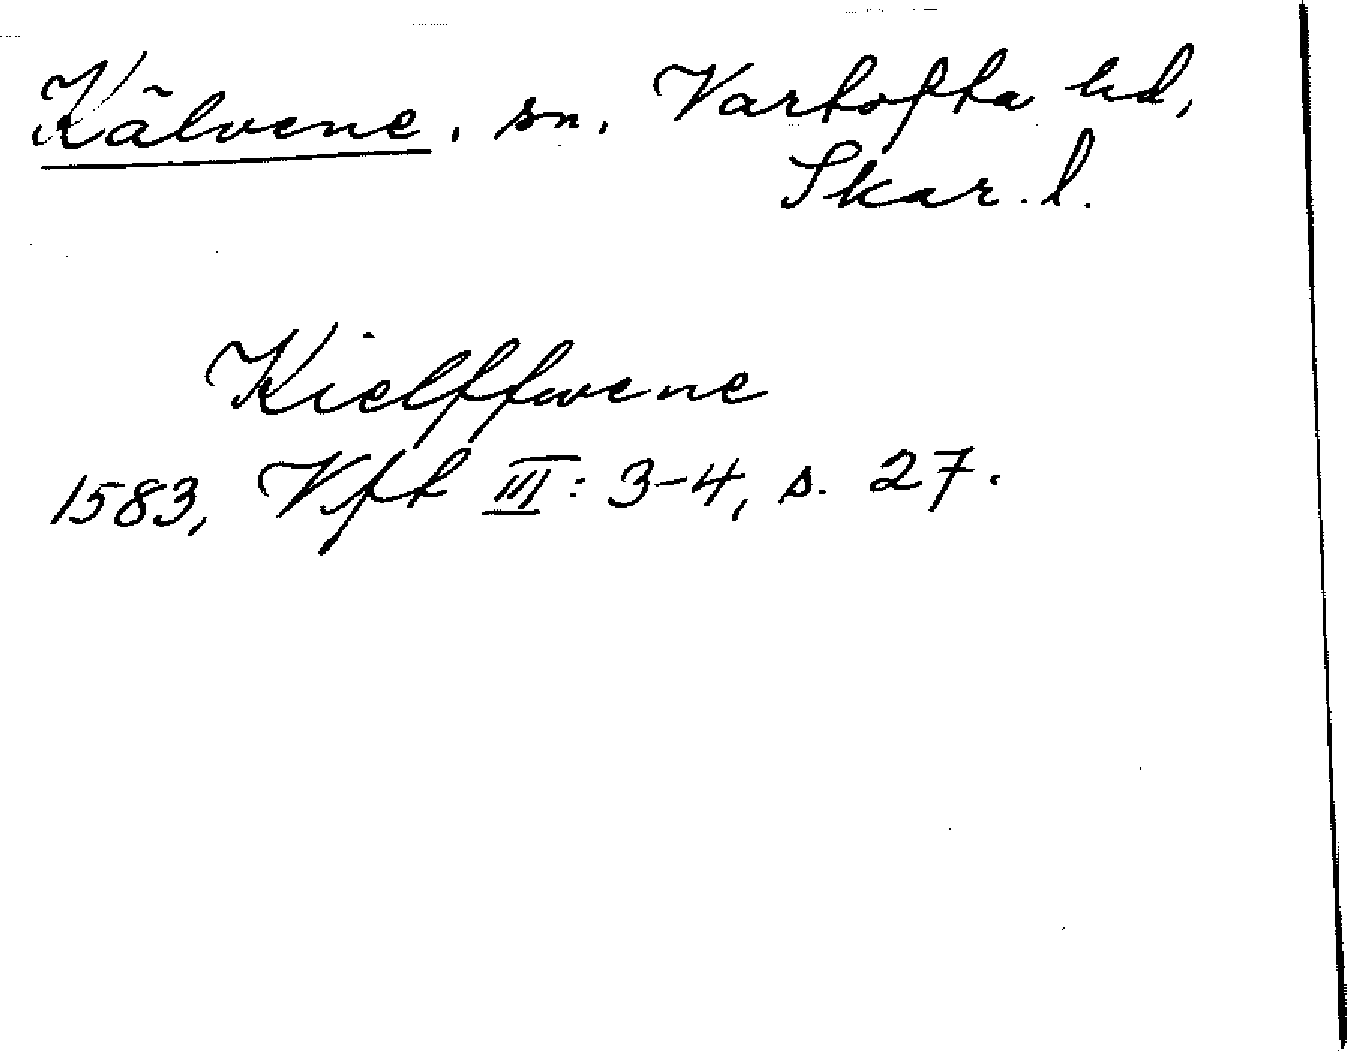 Kälvene, sn, Vartofta hd,
Skar. l.
Kielffwene
1583, Vft III: 3-4, s. 27.